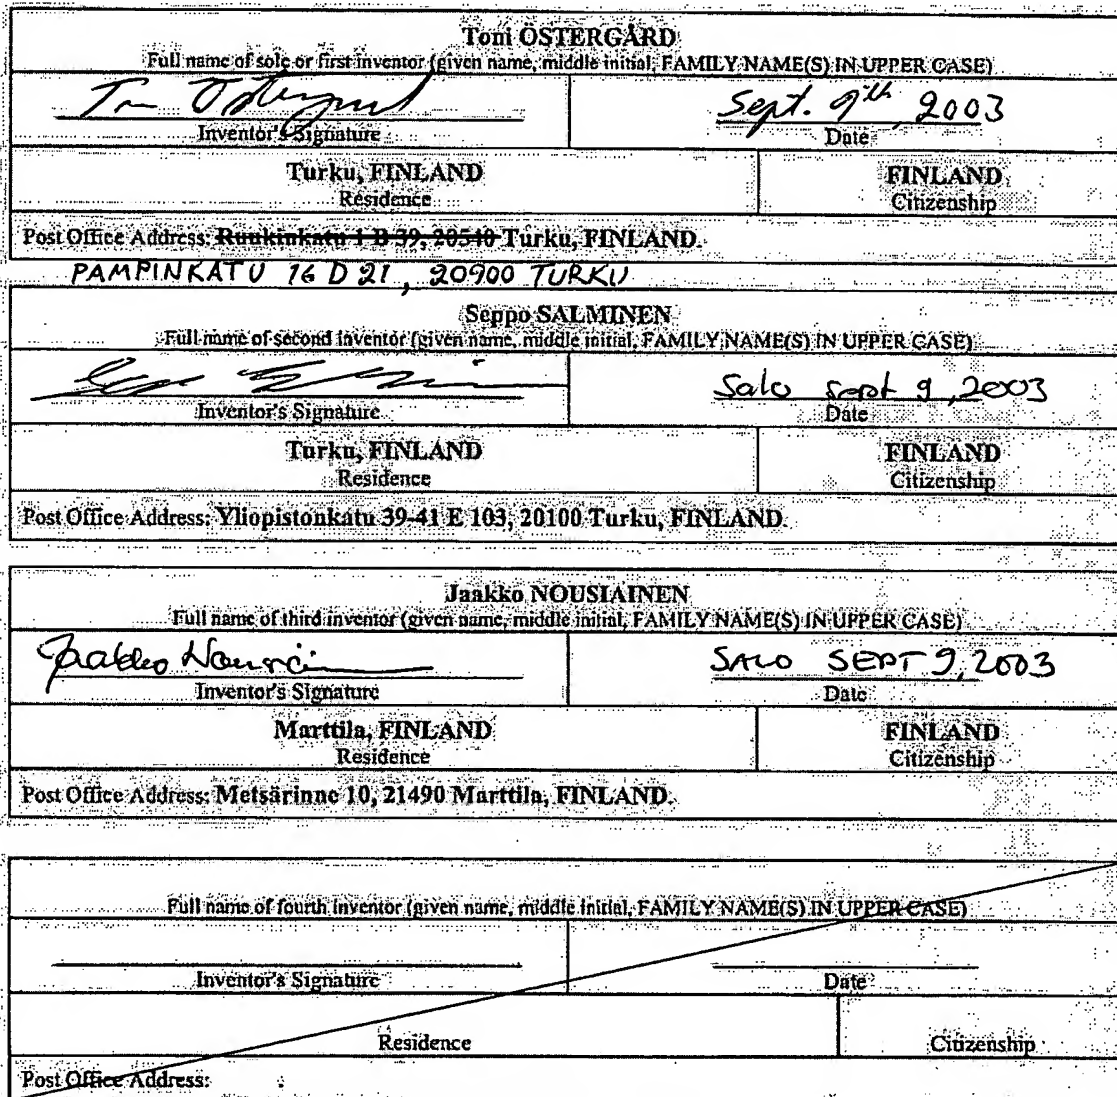 Toni ÖSTERGÅRD
Full name of sole or first inventor (given name, middle initial, FAMILY NAME(S) IN UPPER CASE)
Sept. 9th, 2003
Inventor's Signature Date
Turku, FINLAND FINLAND
Residence Citizenship
Post Office Address: Ruukinkatu 1 B 39, 20540 Turku, FINLAND.
PAMPINKATU 16 D 21, 20900 TURKU
Seppo SALMINEN
Full name of second inventor (given name, middle initial, FAMILY NAME(S) IN UPPER CASE)
Salo sept 9, 2003
Inventor's Signature Date
Turku, FINLAND FINLAND
Residence Citizenship
Post Office Address: Yliopistonkatu 39-41 E 103, 20100 Turku, FINLAND.
Jaakko NOUSIAINEN
Full name of third inventor (given name, middle initial, FAMILY NAME(S) IN UPPER CASE)
Jaakko SALO SEPT 9, 2003
Inventor's Signature Date
Marttila, FINLAND FINLAND
Residence Citizenship
Post Office Address: Metsärinne 10, 21490 Marttila, FINLAND.
Full name of fourth inventor (given name, middle initial, FAMILY NAME(S) IN UPPER CASE)
Inventor's Signature Date
Residence Citizenship
Post Office Address: